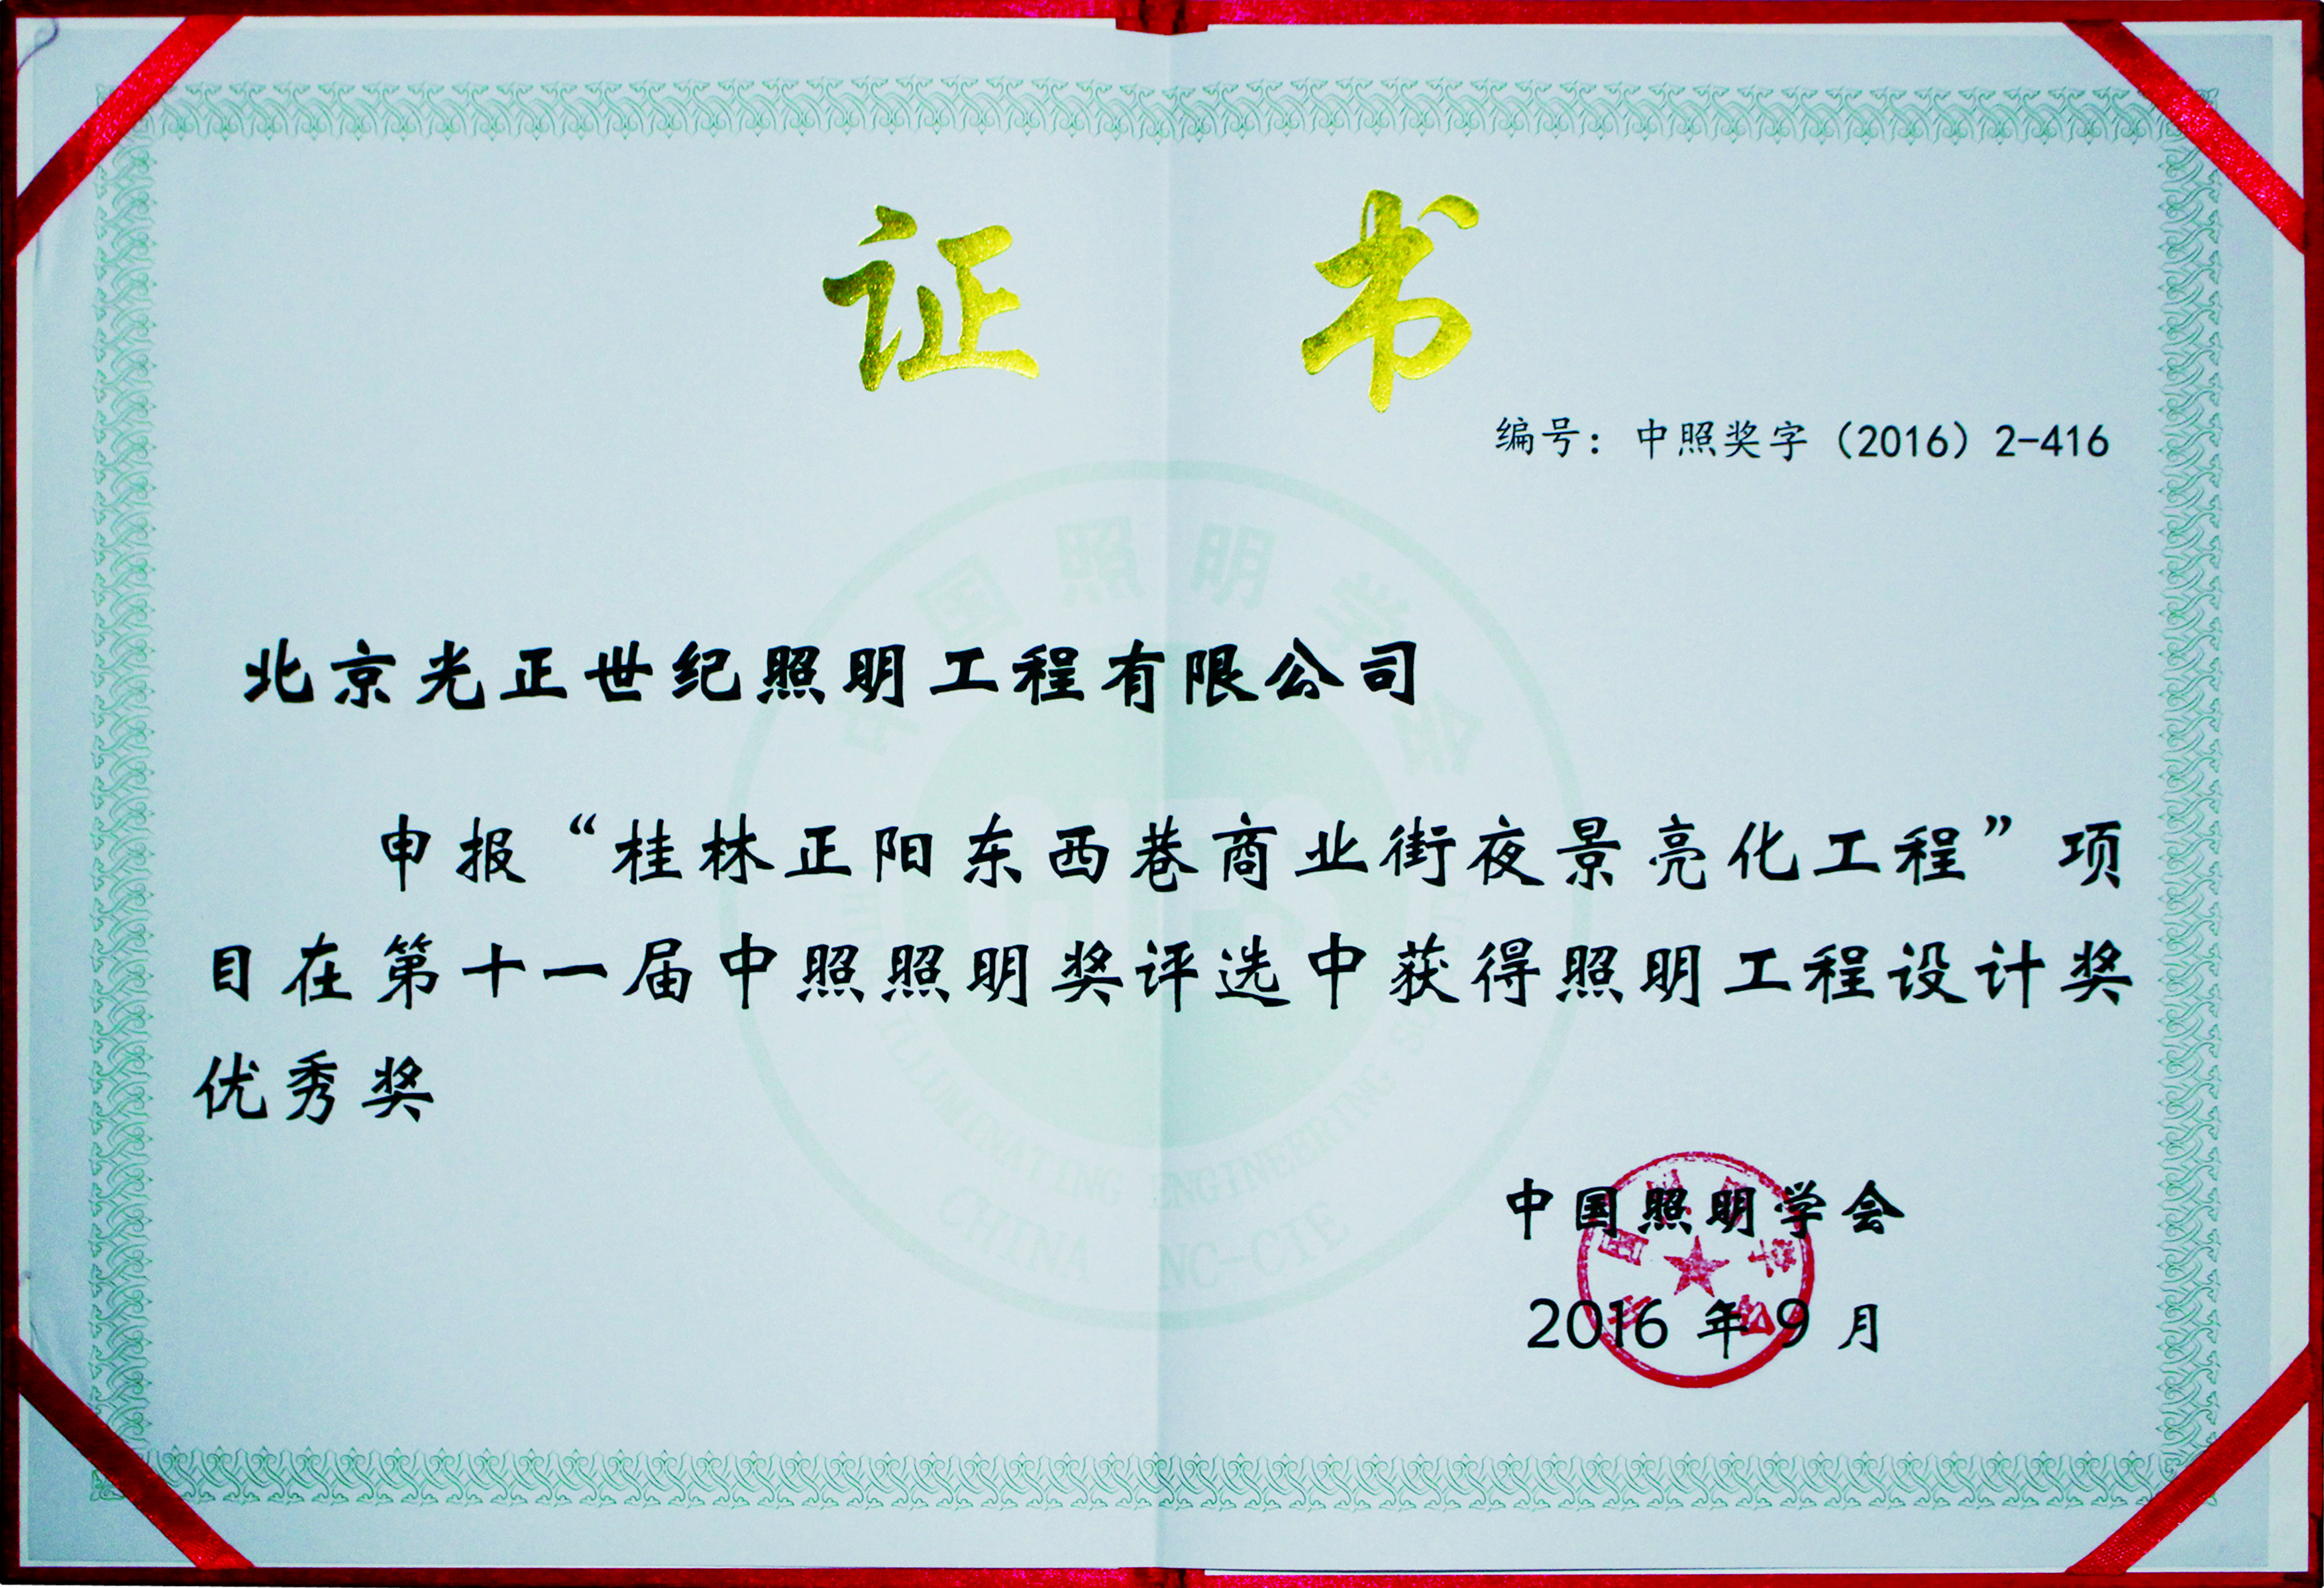 证书
编号：中照奖字（2016）2-416
中国照明学会
北京光正世纪照明工程有限公司
申报“桂林正阳东西巷商业街夜景亮化工程”项
目在第十一届中照照明奖评选中获得照明工程设计奖
优秀奖
ILLUMINATING ENGINEERING
CHINA NC-CIE
中国照明学会
2016 年 9 月